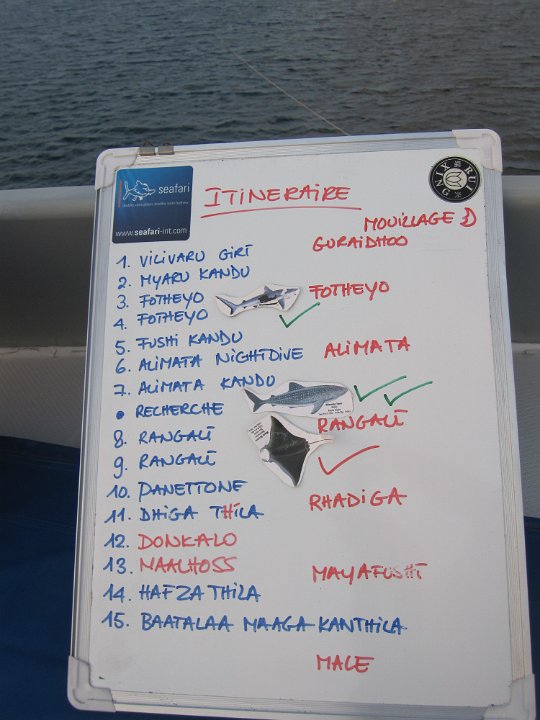 seafari
www.seafari-int.com
ITINERAIRE
MOUILLAGE
GURAIDHOO
1. VILIVARU GIRI
2. MYARU KANDU
3. FOTHEYO
FOTHEYO
4. FOTHEYO
5. FUSHI KANDU
6. ALIMATA NIGHTDIVE
ALIMATA
7. ALIMATA KANDU
• RECHERCHE
RANGALI
8. RANGALI
9. RANGALI
10. PANETTONE
RHADIGA
11. DHIGA THILA
12. DONKALO
13. MAALHOSS
MAYAFUSHI
14. HAFZA THILA
15. BAATALAA MAAGA KANTHILA
MALE